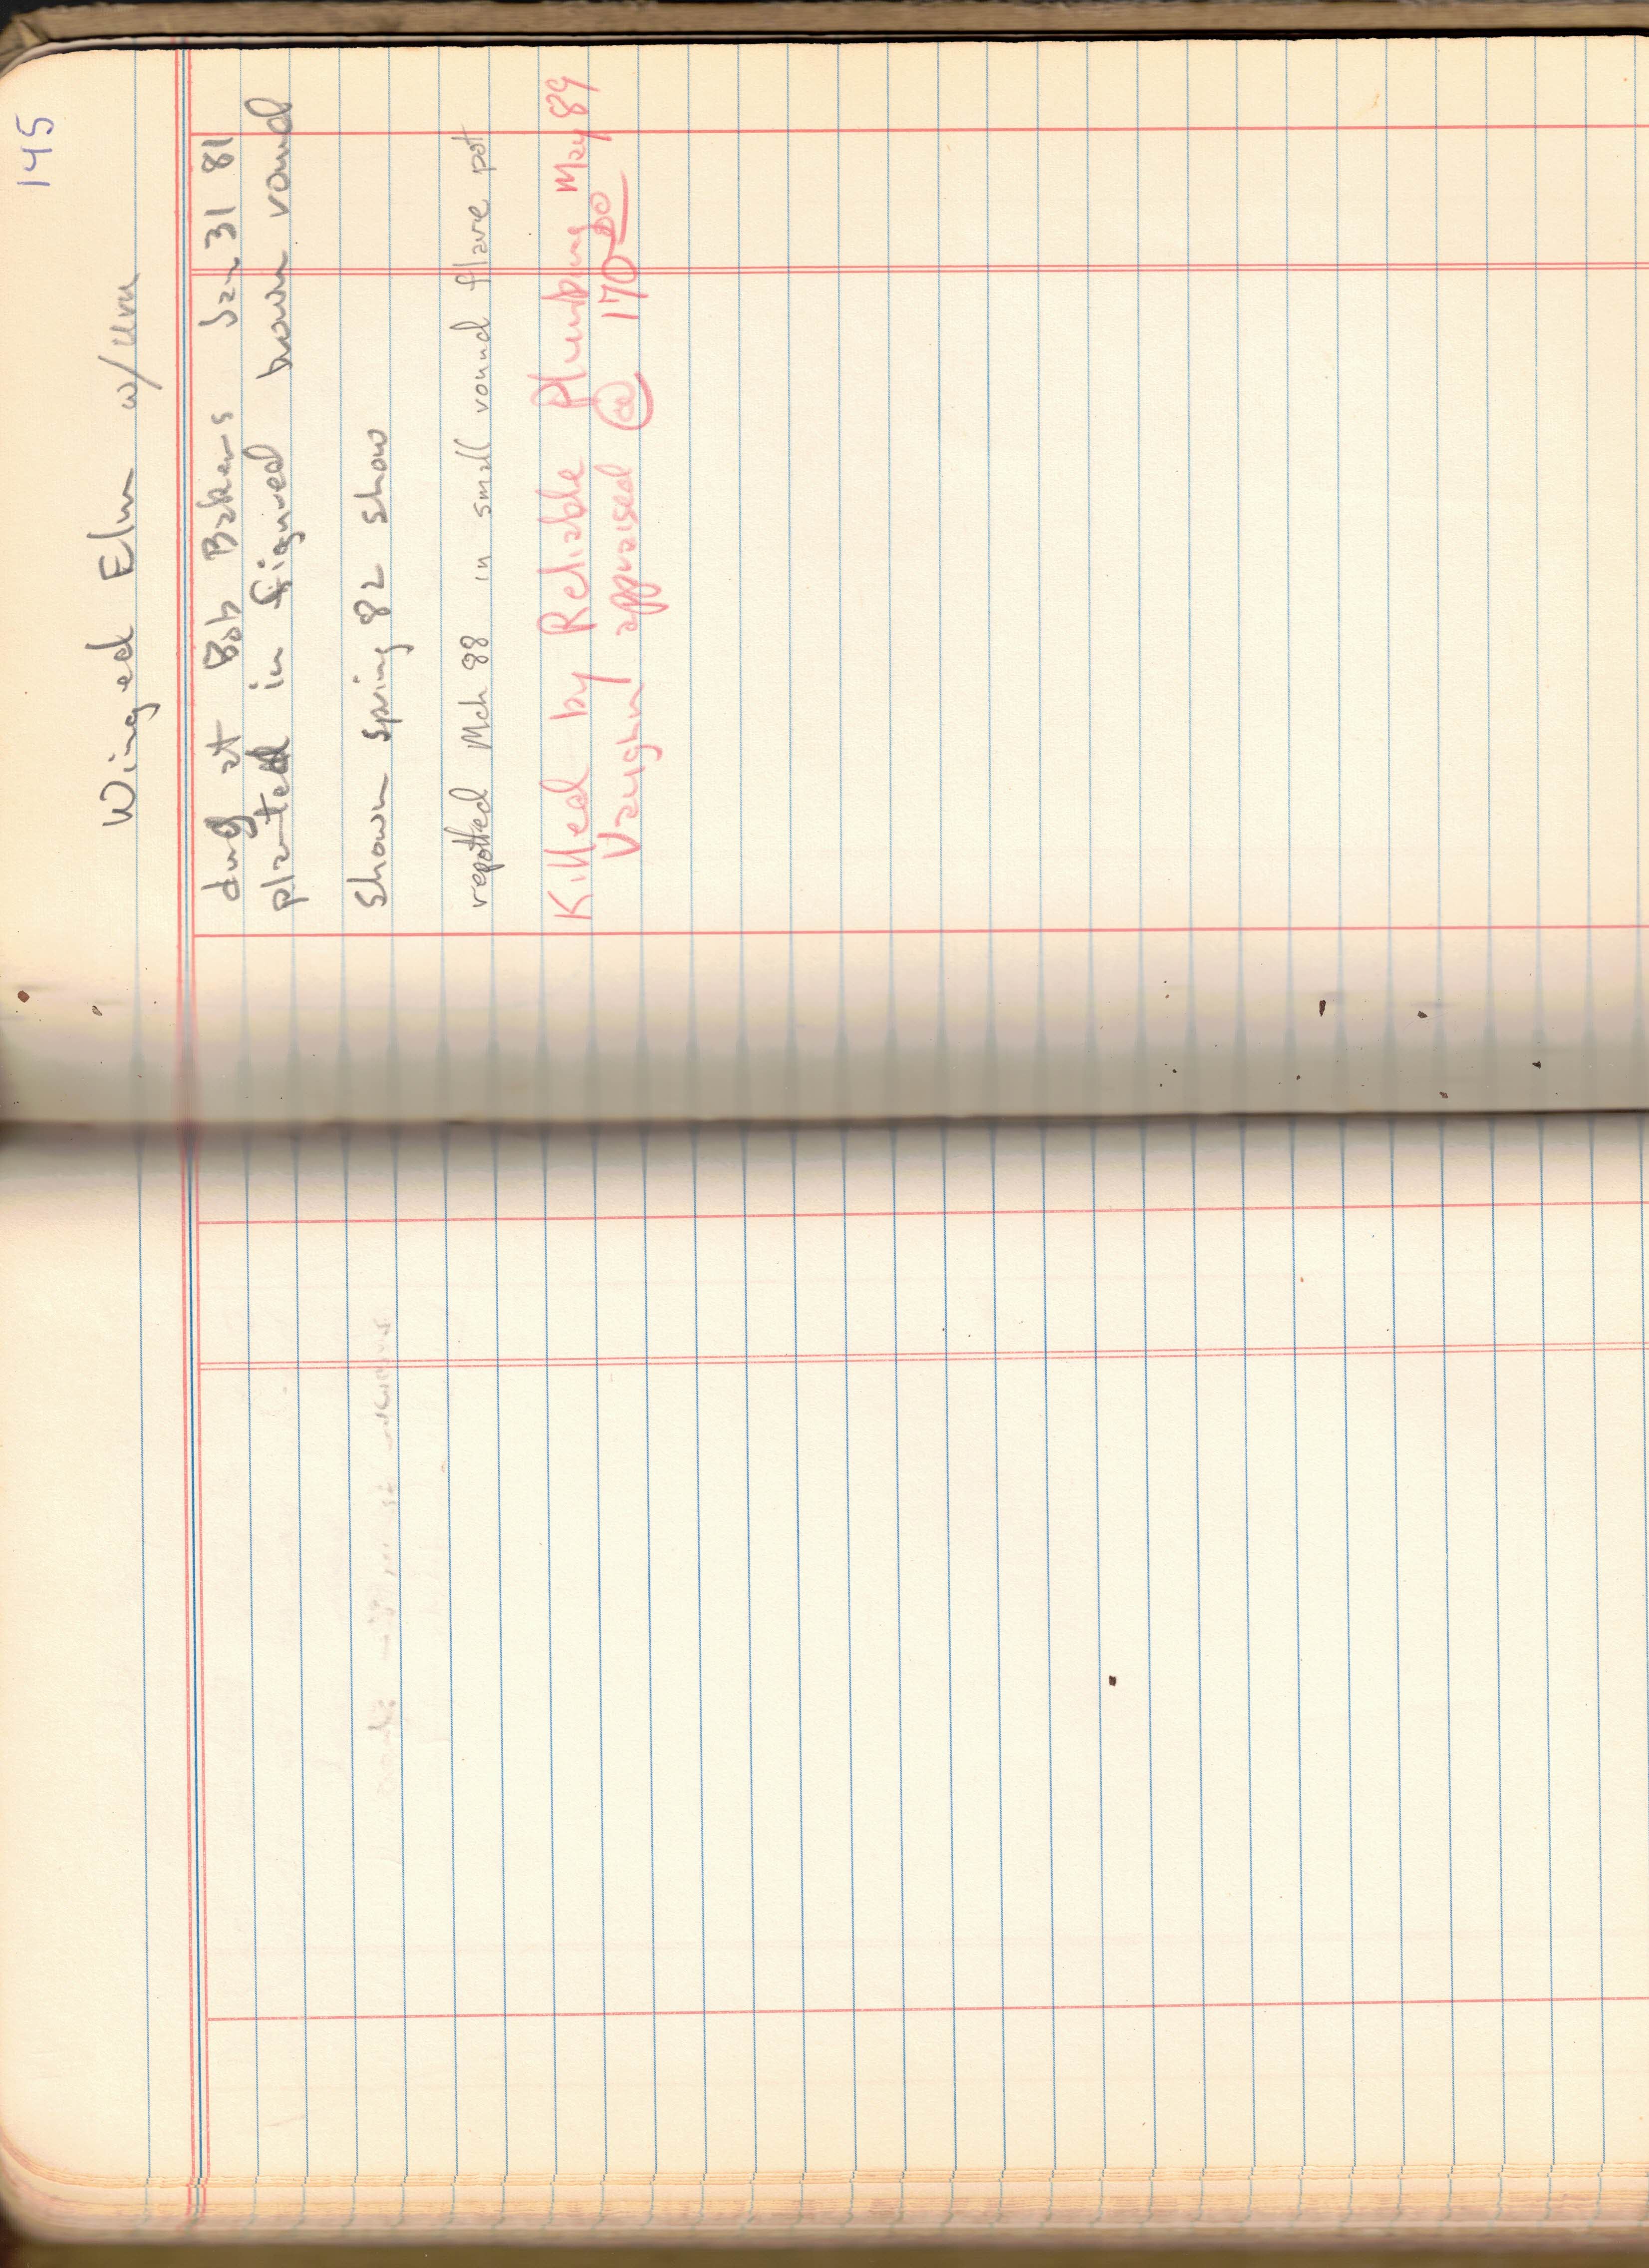 145
Winged Elm w/
dug at Bob Bakers Jan 31 81
planted in figured brown round
Shown spring 82 show
repotted Mch 88 in small round flare pot
Killed by Reliable Plumbing May 89
Vaughn appraised @ 170 00